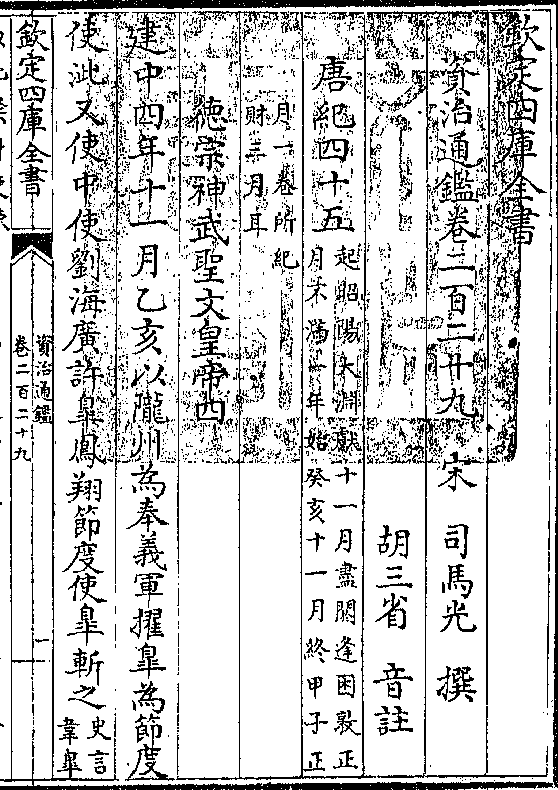 欽定四庫全書
資治通鑑卷二百二十九
宋 司馬光 撰
胡三省 音註
唐紀四十五
起昭陽大淵獻十一月盡閼逢困敦正
月不滿一年始癸亥十一月終甲子正
月一卷所紀
財三月耳
德宗神武聖文皇帝四
建中四年十一月乙亥以隴州為奉義軍擢臯為節度
使泚又使中使劉海廣許臯鳳翔節度使臯斬之
史言
韋臯
欽定四庫全書
資治通鑑
卷二百二十九
一